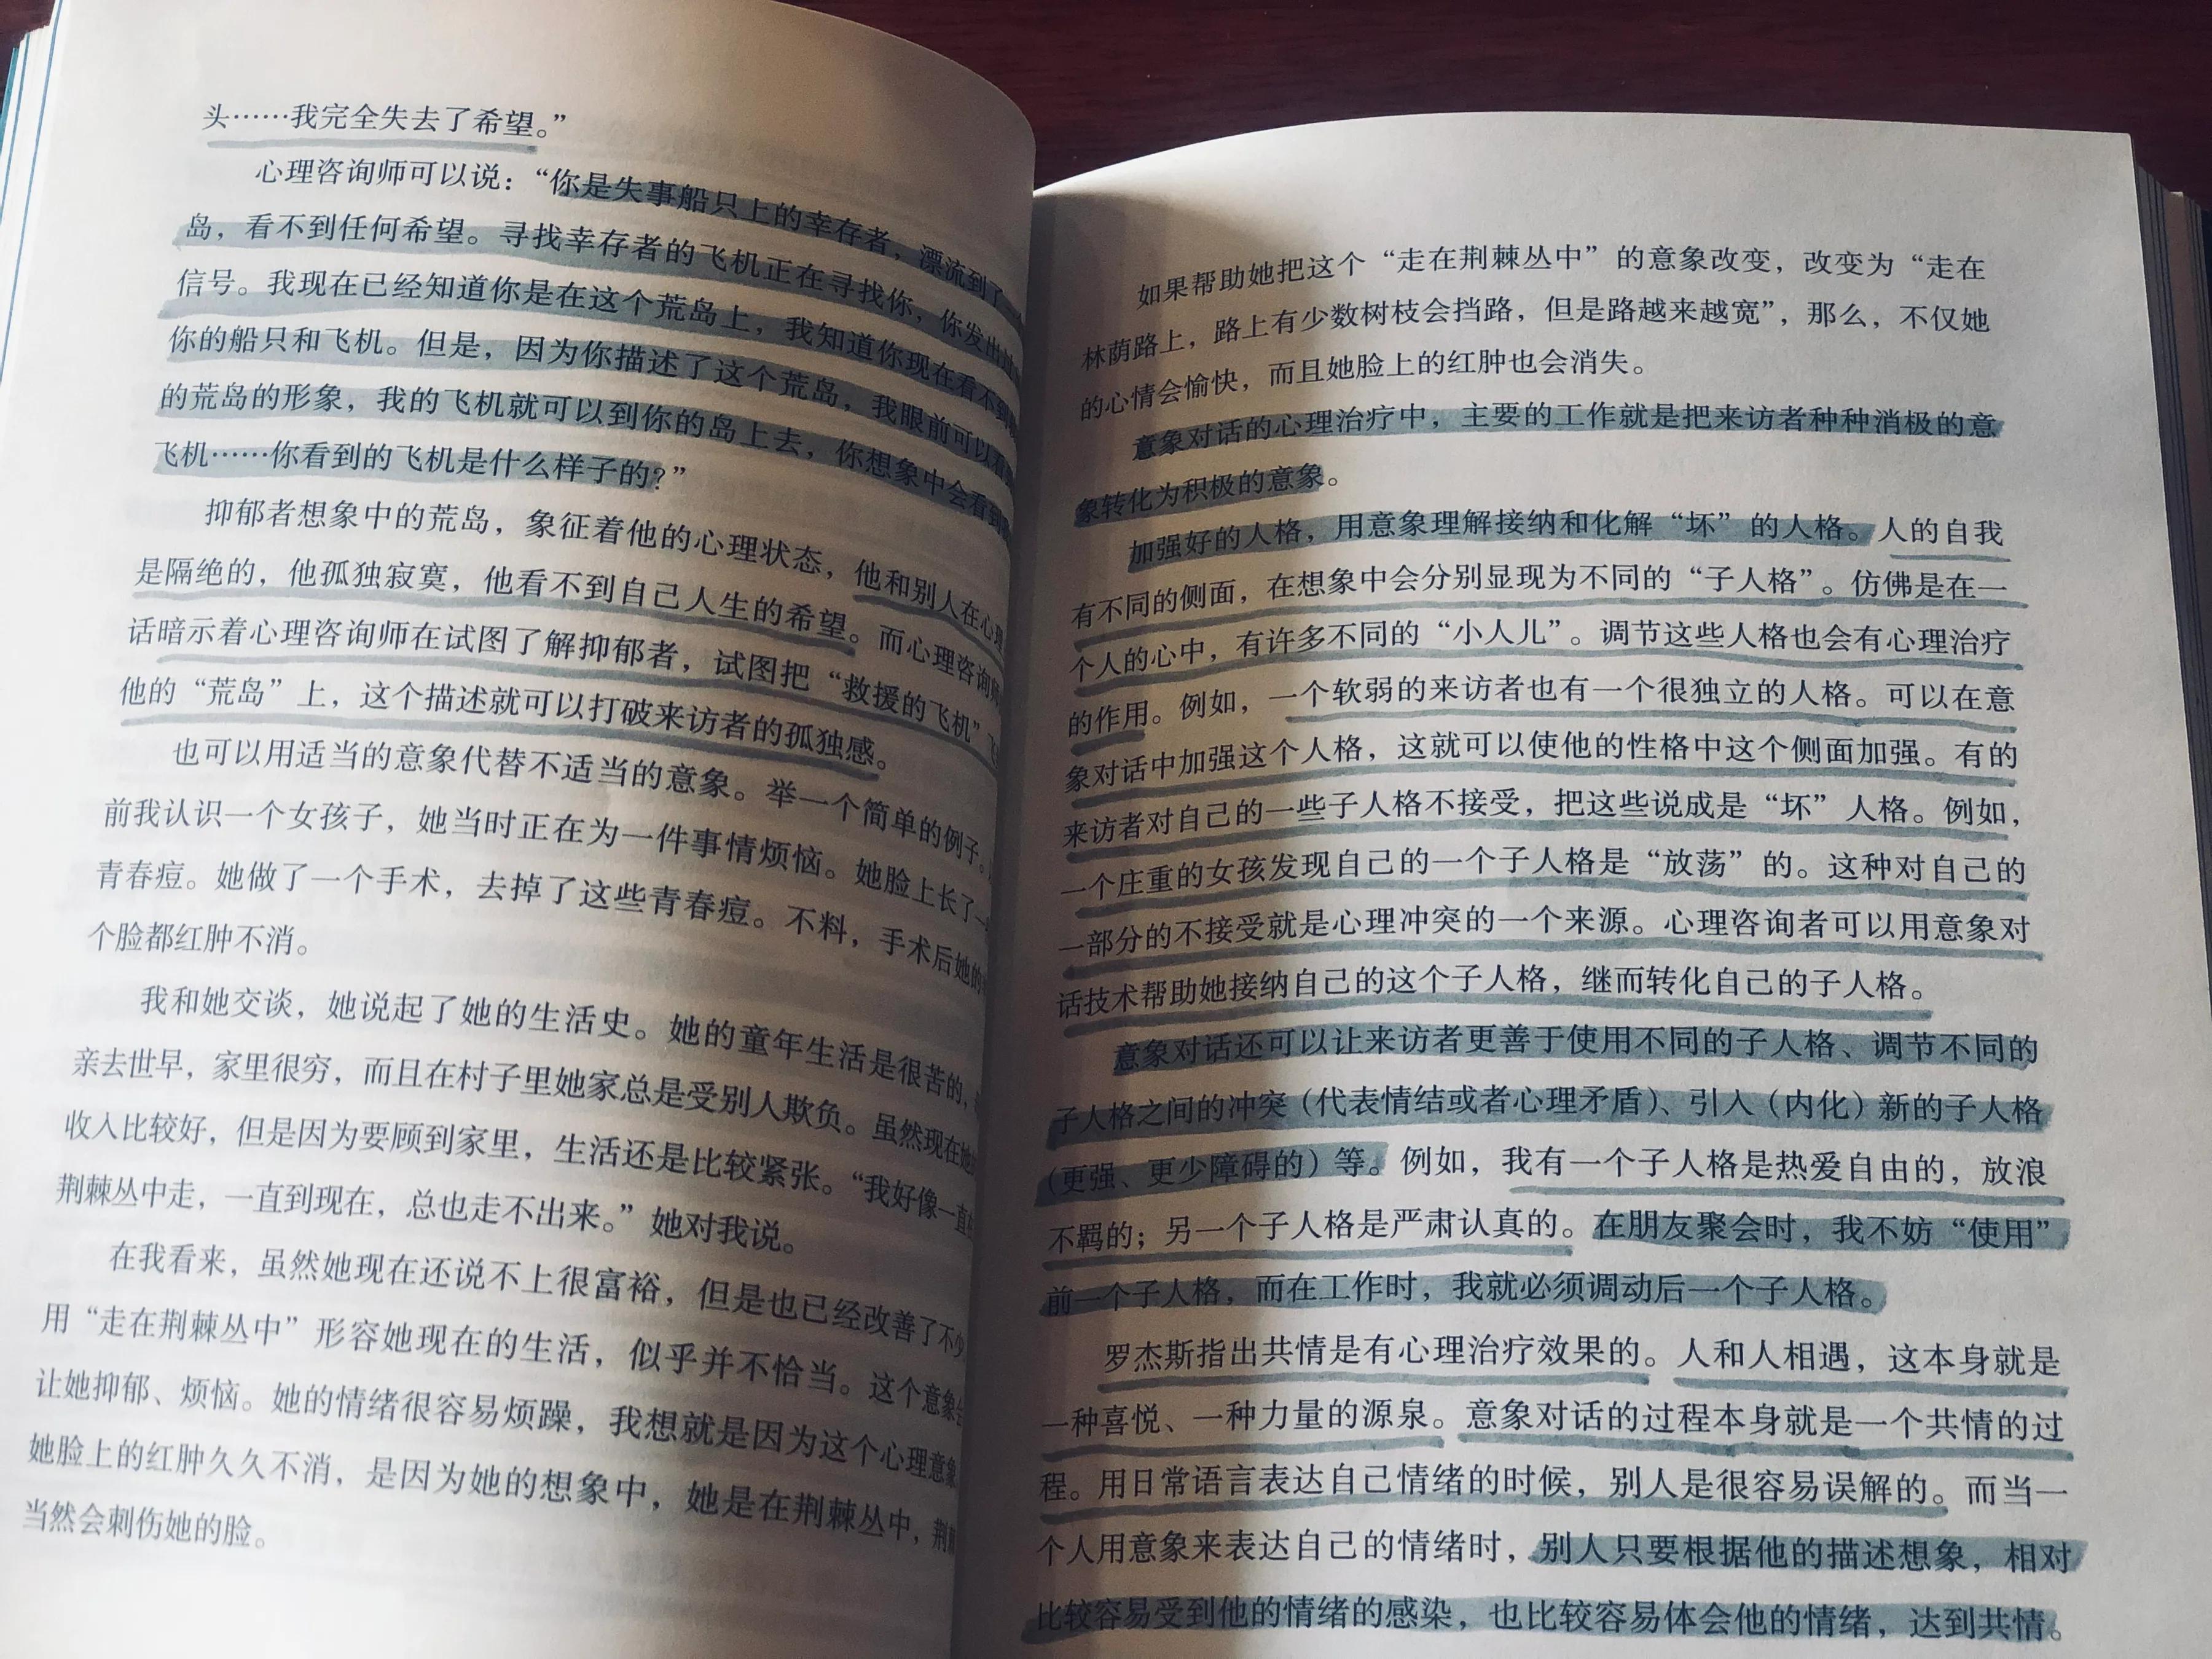 头……我完全失去了希望。”
心理咨询师可以说：“你是失事船只上的幸存者，漂流到了
岛，看不到任何希望。寻找幸存者的飞机正在寻找你，你发出
信号。我现在已经知道你是在这个荒岛上，我知道你现在看不到
你的船只和飞机。但是，因为你描述了这个荒岛，我眼前可以
的荒岛的形象，我的飞机就可以到你的岛上去，你想象中会看到
飞机……你看到的飞机是什么样子的？”
抑郁者想象中的荒岛，象征着他的心理状态，他和别人在心理
是隔绝的，他孤独寂寞，他看不到自己人生的希望。而心理咨询师
话暗示着心理咨询师在试图了解抑郁者，试图把“救援的飞机”飞
他的“荒岛”上，这个描述就可以打破来访者的孤独感。
也可以用适当的意象代替不适当的意象。举一个简单的例子。
前我认识一个女孩子，她当时正在为一件事情烦恼。她脸上长了一
青春痘。她做了一个手术，去掉了这些青春痘。不料，手术后她的
个脸都红肿不消。
我和她交谈，她说起了她的生活史。她的童年生活是很苦的，
亲去世早，家里很穷，而且在村子里她家总是受别人欺负。虽然现在她
收入比较好，但是因为要顾到家里，生活还是比较紧张。“我好像一直
荆棘丛中走，一直到现在，总也走不出来。”她对我说。
在我看来，虽然她现在还说不上很富裕，但是也已经改善了不少
用“走在荆棘丛中”形容她现在的生活，似乎并不恰当。这个意象
让她抑郁、烦恼。她的情绪很容易烦躁，我想就是因为这个心理意象
她脸上的红肿久久不消，是因为她的想象中，她是在荆棘丛中，荆
当然会刺伤她的脸。
如果帮助她把这个“走在荆棘丛中”的意象改变，改变为“走在
林荫路上，路上有少数树枝会挡路，但是路越来越宽”，那么，不仅她
的心情会愉快，而且她脸上的红肿也会消失。
意象对话的心理治疗中，主要的工作就是把来访者种种消极的意
象转化为积极的意象。
加强好的人格，用意象理解接纳和化解“坏”的人格。人的自我
有不同的侧面，在想象中会分别显现为不同的“子人格”。仿佛是在一
个人的心中，有许多不同的“小人儿”。调节这些人格也会有心理治疗
的作用。例如，一个软弱的来访者也有一个很独立的人格。可以在意
象对话中加强这个人格，这就可以使他的性格中这个侧面加强。有的
来访者对自己的一些子人格不接受，把这些说成是“坏”人格。例如，
一个庄重的女孩发现自己的一个子人格是“放荡”的。这种对自己的
一部分的不接受就是心理冲突的一个来源。心理咨询者可以用意象对
话技术帮助她接纳自己的这个子人格，继而转化自己的子人格。
意象对话还可以让来访者更善于使用不同的子人格、调节不同的
子人格之间的冲突（代表情结或者心理矛盾）、引入（内化）新的子人格
（更强、更少障碍的）等。例如，我有一个子人格是热爱自由的，放浪
不羁的；另一个子人格是严肃认真的。在朋友聚会时，我不妨“使用”
前一个子人格，而在工作时，我就必须调动后一个子人格。
罗杰斯指出共情是有心理治疗效果的。人和人相遇，这本身就是
一种喜悦、一种力量的源泉。意象对话的过程本身就是一个共情的过
程。用日常语言表达自己情绪的时候，别人是很容易误解的。而当一
个人用意象来表达自己的情绪时，别人只要根据他的描述想象，相对
比较容易受到他的情绪的感染，也比较容易体会他的情绪，达到共情。